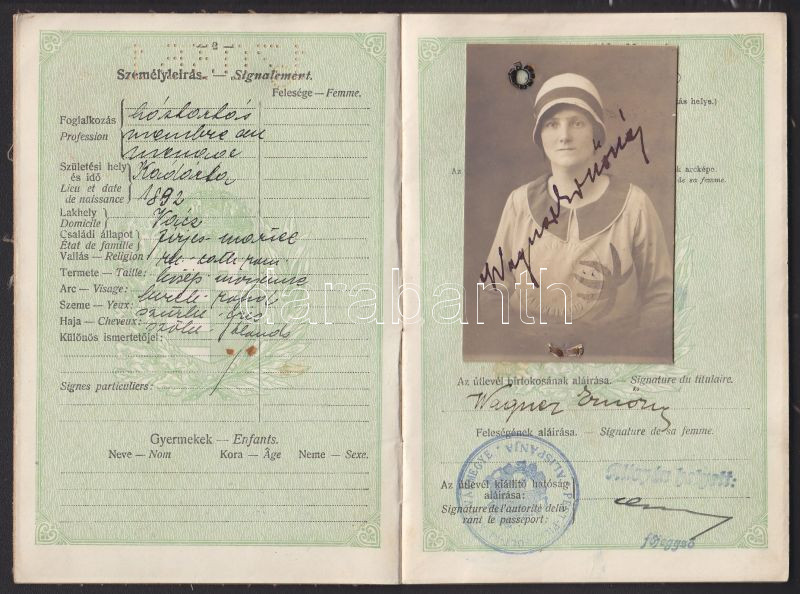 2
Személyleírás. — Signalement.
Felesége — Femme.
Foglalkozás
Profession
háztartás
membre du
menage
Születési hely
és idő
Lieu et date
de naissance:
Kadarta
1892
Lakhely
Domicile
Vács
Családi állapot
État de famille
férjes - mariée
Vallás — Religion
rk. - cath. rom.
Termete — Taille:
közép - moyenne
Arc — Visage:
kerek - rond
Szeme — Yeux:
szürke - gris
Haja — Cheveux:
szőke - blonds
Különös ismertetőjel:
Signes particuliers:
Gyermekek — Enfants.
Neve — Nom Kora — Âge Neme — Sexe.
ás helye.)
Az
arcképe.
de sa femme.
Wagner Ernőné
darabanth
Az útlevél birtokosának aláírása. — Signature du titulaire.
Wagner Ernőné
Feleségének aláírása. — Signature de sa femme.
Az útlevél kiállító hatóság
aláírása:
Signature de l'autorité délivrant
rant le passeport:
ALISPÁNJA
Alispán helyett:
főjegyző